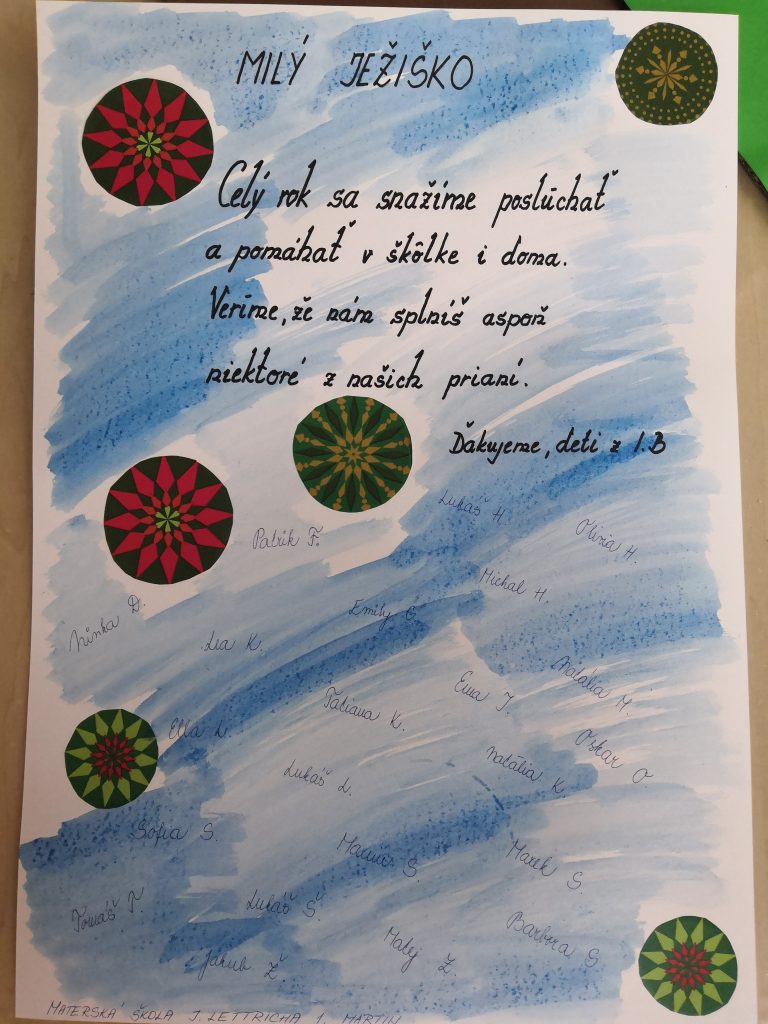 MILÝ JEŽIŠKO
Celý rok sa snažíme poslúchať
a pomáhať v škôlke i doma.
Veríme, že nám splníš aspoň
niektoré z našich prianí.
Ďakujeme, deti z 1.B
Lukáš H.
Olívia H.
Patrik F.
Michal H.
Ninka D.
Emily G.
Lia K.
Natália H.
Ema J.
Tatiana K.
Ella L.
Oskar O.
Natália K.
Lukáš L.
Sofia S.
S.
Marek S.
Lukáš Š.
Tomáš T.
Barbora S.
Matej Z.
Jakub Ž.
MATERSKÁ ŠKOLA J. LETTRICHA 1, MARTIN